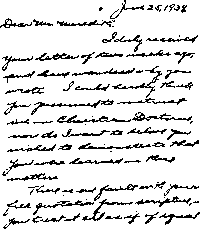 June 25, 1938
Dear Mr. Meredith,
I duly received
your letter of two weeks ago,
and have wondered why you
wrote. I could hardly think
you presumed to instruct
me in Christian Doctrine,
nor do I want to believe you
wished to demonstrate that
you were learned in these
matters.
There is one fault with your
full quotation from scriptures,
you treat it all as if of equal